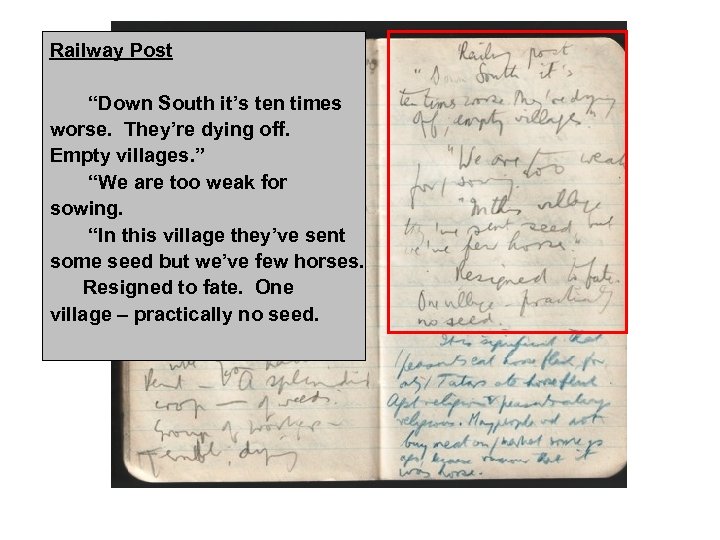 Railway Post
“Down South it’s ten times
worse.  They’re dying off.
Empty villages.”
“We are too weak for
sowing.
“In this village they’ve sent
some seed but we’ve few horses.
Resigned to fate.  One
village – practically no seed.
Railway post
"Down South it's
ten times worse. They're dying
off, empty villages"
"We are too weak
for sowing.
"In this village
they've sent seed but
we've few horses"
Resigned to fate.
One village – practically
no seed.
It is significant that
peasants eat horse flesh for
only Tatars ate horseflesh
religion & peasants always
religious. Many people wd not
buy meat on market some
ago, because rumour that it
was horse.
A splendid
crop — of weeds.
Group of
dying